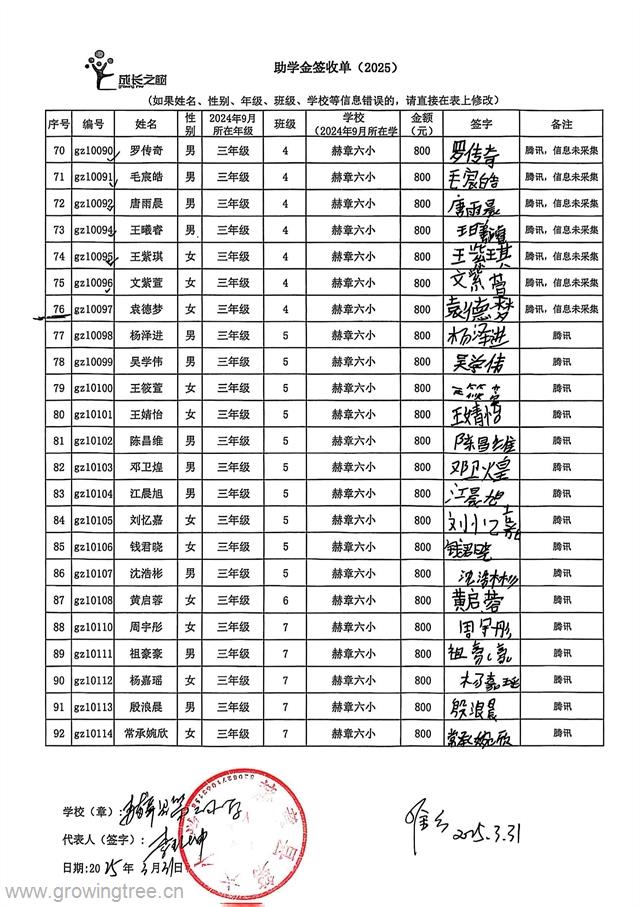 成长之树
助学金签收单（2025）
（如果姓名、性别、年级、班级、学校等信息错误的，请直接在表上修改）
序号 编号 姓名 性别 2024年9月所在年级 班级 学校（2024年9月所在学 金额（元） 签字 备注
70 gz10090 罗传奇 男 三年级 4 赫章六小 800 罗传奇 腾讯，信息未采集
71 gz10091 毛宸皓 男 三年级 4 赫章六小 800 毛宸皓 腾讯，信息未采集
72 gz10092 唐雨晨 男 三年级 4 赫章六小 800 唐雨晨 腾讯，信息未采集
73 gz10094 王曦睿 男 三年级 4 赫章六小 800 王曦睿 腾讯，信息未采集
74 gz10095 王紫琪 女 三年级 4 赫章六小 800 王紫琪 腾讯，信息未采集
75 gz10096 文紫萱 女 三年级 4 赫章六小 800 文紫萱 腾讯，信息未采集
76 gz10097 袁德梦 女 三年级 4 赫章六小 800 袁德梦 腾讯，信息未采集
77 gz10098 杨泽进 男 三年级 5 赫章六小 800 杨泽进 腾讯
78 gz10099 吴学伟 男 三年级 5 赫章六小 800 吴学伟 腾讯
79 gz10100 王筱萱 女 三年级 5 赫章六小 800 王筱萱 腾讯
80 gz10101 王婧怡 女 三年级 5 赫章六小 800 王婧怡 腾讯
81 gz10102 陈昌维 男 三年级 5 赫章六小 800 陈昌维 腾讯
82 gz10103 邓卫煌 男 三年级 5 赫章六小 800 邓卫煌 腾讯
83 gz10104 江晨旭 男 三年级 5 赫章六小 800 江晨旭 腾讯
84 gz10105 刘忆嘉 女 三年级 5 赫章六小 800 刘忆嘉 腾讯
85 gz10106 钱君晓 女 三年级 5 赫章六小 800 钱君晓 腾讯
86 gz10107 沈浩彬 男 三年级 5 赫章六小 800 沈浩彬 腾讯
87 gz10108 黄启蓉 女 三年级 6 赫章六小 800 黄启蓉 腾讯
88 gz10110 周宇彤 女 三年级 7 赫章六小 800 周宇彤 腾讯
89 gz10111 祖豪豪 男 三年级 7 赫章六小 800 祖豪豪 腾讯
90 gz10112 杨嘉瑶 女 三年级 7 赫章六小 800 杨嘉瑶 腾讯
91 gz10113 殷浪晨 男 三年级 7 赫章六小 800 殷浪晨 腾讯
92 gz10114 常承婉欣 女 三年级 7 赫章六小 800 常承婉欣 腾讯
学校（章）：
代表人（签字）：
日期:2025年3月31日
2025.3.31
www.growingtree.cn